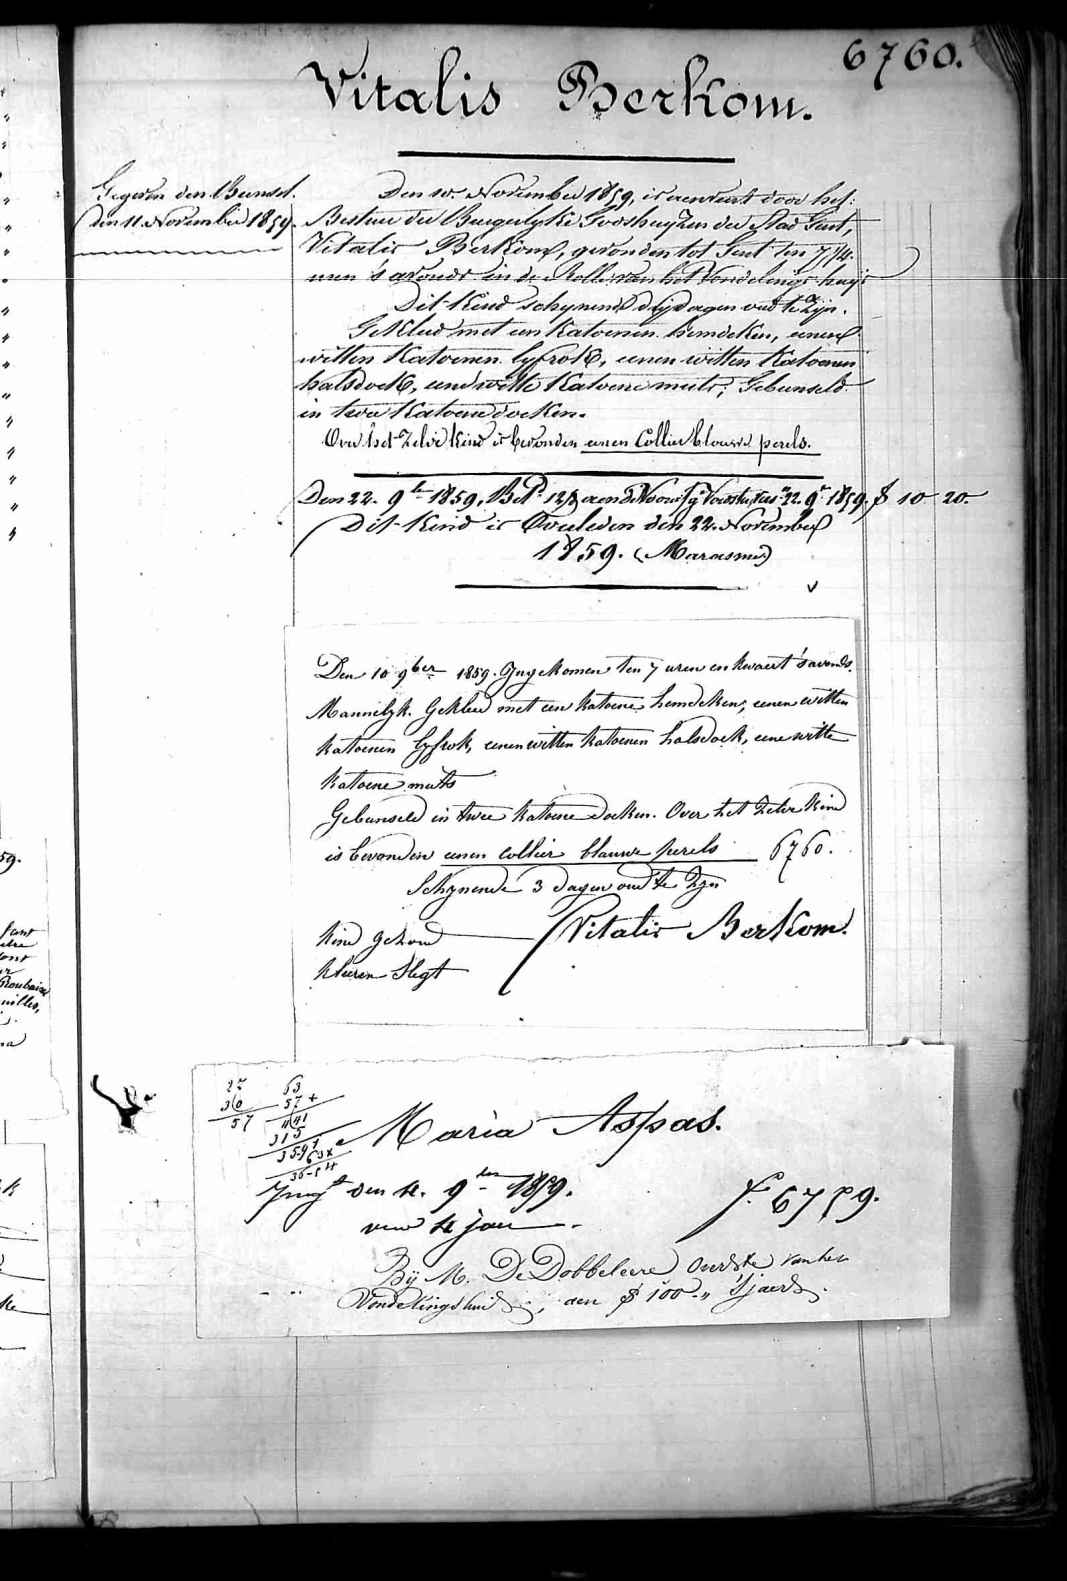 6760.
Vitalis Berkom.
Gegeven den
Den 11. November 1859.
Den 10. November 1859, is aenveert door het
Bestuer der Burgerlyke Godshuyzen der Stad Gent,
Vitalis Berkom, gevonden tot Gent ten 7 1/4.
uren 's avonds in de Rolle van het Vondelings huys
Dit Kind schynende dry dagen oud te Zyn.
Gekleed met een Katoenen hemdeken, eenen
witten Katoenen lyfrok, eenen witten Katoenen
halsdoek, eene witte Katoene muts; Gebunseld
in twee Katoene doeken.
Over het Zelve Kind is bevonden eenen Collier blauwe perels.
Den 22. 9b 1859, 22. 9r 1859. 10 20.
Dit Kind is Overleden den 22. November
1859. (Marasme)
Den 10 9ber 1859. Ingekomen ten 7 uren en kwaert 's avonds.
Mannelyk. Gekleed met een katoene hemdeken, eenen witten
katoenen lyfrok, eenen witten katoenen halsdoek, eene witte
katoene muts
Gebunseld in twee katoene doeken. Over het Zelve Kind
is bevonden eenen collier blauwe perels 6760.
Schynende 3 dagen oud te Zyn
Kind gezond Vitalis Berkom.
kleeren slegt
27 63
30 57 +
57 441
315
3591
63 x
Maria Aspas.
den 4. 9ber 1859. f. 6759.
4 jaer
Bij M. De Dobbeleere Oudste van het
Vondelingshuis, aen 100 " 'sjaers.